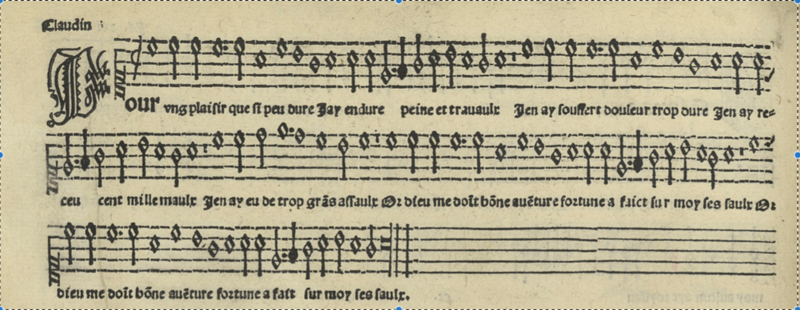 Claudin
Pour vng plaisir que si peu dure Jay endure peine et trauaulx Jen ay souffert douleur trop dure Jen ay re=
ceu cent mille maulx Jen ay eu de trop grãs assaulx Or dieu me doīt bõne auẽture fortune a faict sur moy ses saulx Or
dieu me doīt bõne auẽture fortune a fait sur moy ses saulx.